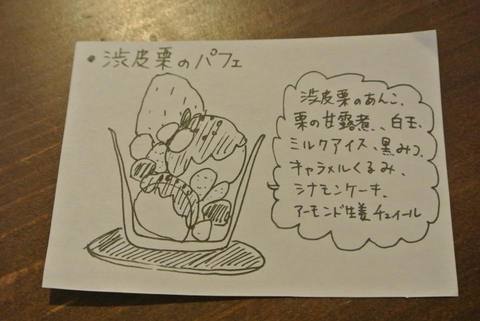 • 渋皮栗のパフェ
渋皮栗のあんこ、
栗の甘露煮、、白玉、
ミルクアイス、黒みつ、
キャラメルくるみ、
シナモンケーキ、
アーモンド生姜チュイール